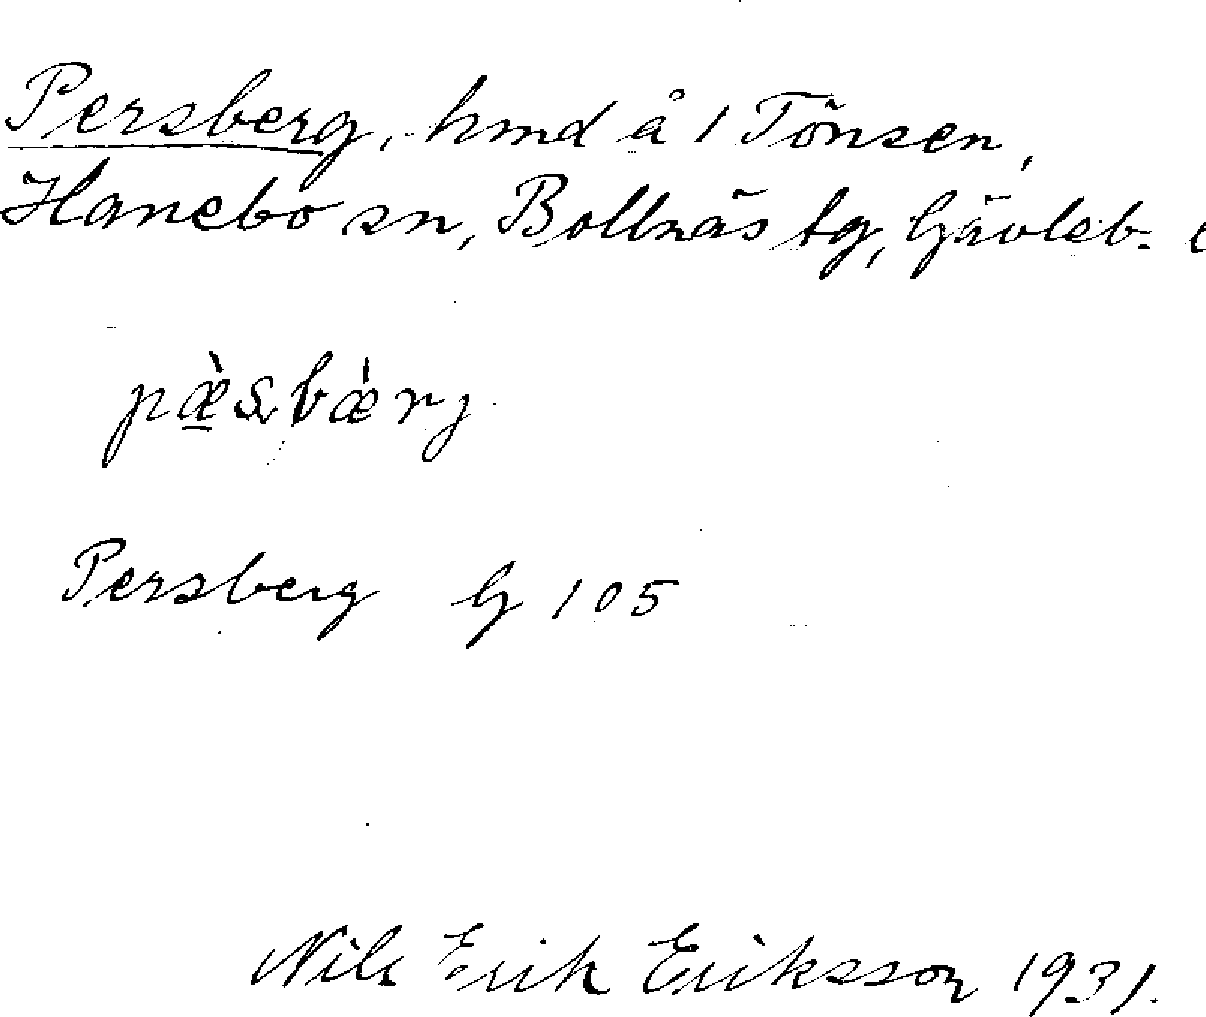 Persberg, hmd å 1 Tönsen,
Hanebo sn, Bollnäs tg, Gävleb. l
pæ̀sbæ̀rj
Persberg G 105
Nils Erik Eriksson 1931.